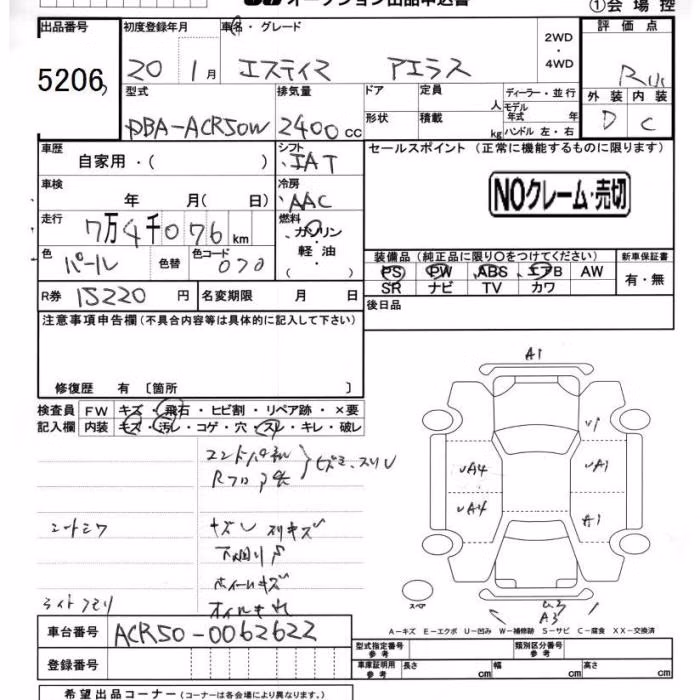 オークション出品申込書
①会場控
出品番号 初度登録年月 車名・グレード 2WD・4WD 評価点
5206 20 1月 エスティマ アエラス
型式 排気量 ドア 定員 人 ディーラー・並行 外装 内装
DBA-ACR50W 2400cc 形状 積載 kg モデル年式 年 ハンドル 左・右 D C
車歴 自家用・( ) シフト IAT セールスポイント (正常に機能するものに限ります)
車検 年 月( 日) 冷房 AAC NOクレーム・売切
走行 7万4千076km 燃料 ガソリン・軽油・( )
色 パール 色替 色コード 070 装備品 (純正品に限り○をつけてください) 新車保証書
PS PW ABS エアB AW 有・無
R券 15220円 名変期限 月 日 SR ナビ TV カワ
後日品
注意事項申告欄 (不具合内容等は具体的に記入して下さい)
修復歴 有 〔箇所 〕
検査員記入欄 FW キズ・飛石・ヒビ割・リペア跡・×要
内装 キズ・汚レ・コゲ・穴・スレ・キレ・破レ
A1
V1
UA4 UA1
UA4 A1
キズ スリキズ
ホイールキズ
スペア
A3
A-キズ E-エクボ U-凹み W-補修跡 S-サビ C-腐食 XX-交換済
車台番号 ACR50-0062622 型式指定番号 参考 類別区分番号 参考
登録番号 車庫証明用 参考 長さ cm 幅 cm 高さ cm
希望出品コーナー (コーナーは各会場により異なります。)